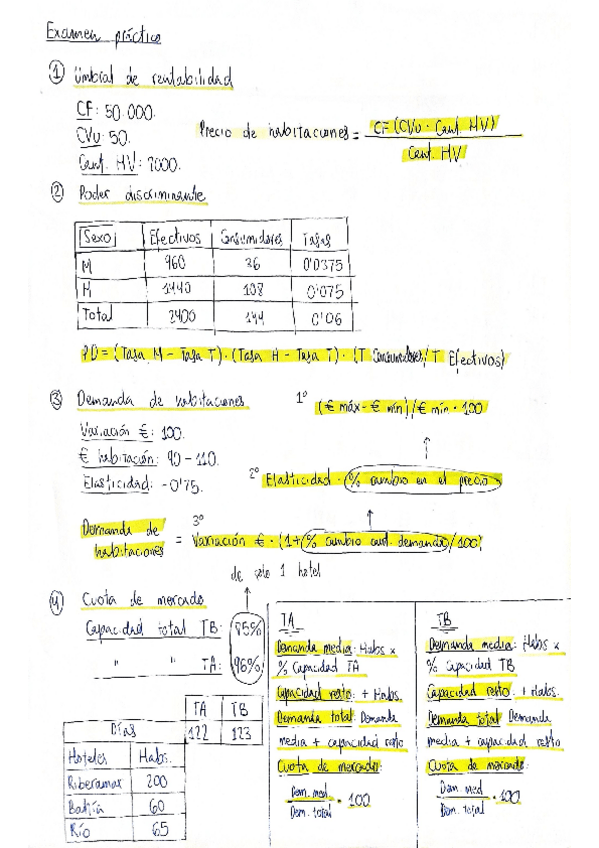 Examen práctico
① Umbral de rentabilidad
CF: 50.000.
CVu: 50.
Cant. HV: 1000.
Precio de habitaciones = CF + (CVu · Cant HV)
Cant. HV
② Poder discriminante
Sexo Efectivos Consumidores Tasas
M 960 36 0'0375
H 1440 108 0'075
Total 2400 144 0'06
PD = (Tasa M - Tasa T) · (Tasa H - Tasa T) · (T Consumidores / T Efectivos)
③ Demanda de habitaciones
Variación €: 100.
€ habitación: 90 - 110.
Elasticidad: -0'75.
1º (€ máx - € mín) / € mín · 100
2º Elasticidad · % cambio en el precio
3º
Demanda de habitaciones = Variación € · (1 + % cambio cant. demanda / 100)
de solo 1 hotel
④ Cuota de mercado
Capacidad total TB: 85%
" " TA: 96%
TA TB
122 123
Días
Hoteles Habs.
Riberamar 200
Bahía 60
Río 65
TA
Demanda media: Habs x
% Capacidad TA
Capacidad resto: + Habs.
Demanda total: Demanda
media + capacidad resto
Cuota de mercado:
Dem. med. · 100
Dem. total
TB
Demanda media: Habs x
% Capacidad TB
Capacidad resto: + Habs.
Demanda total: Demanda
media + capacidad resto
Cuota de mercado:
Dem med · 100
Dem. total